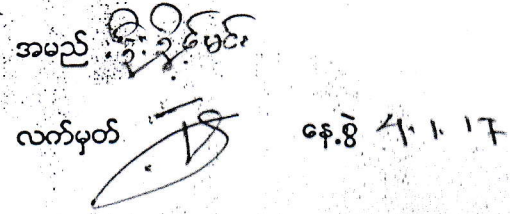 အမည် ဦးခိုင်မင်း
လက်မှတ် နေ့စွဲ 4.1.17